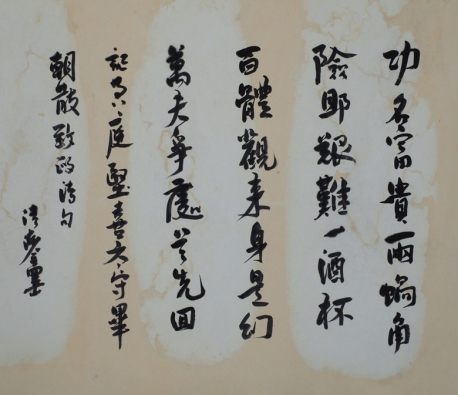 功名富貴兩蝸角
險阻艱難一酒杯
百體觀来身是幻
萬夫爭處首先回
記庭堅喜太守畢
朝散致政詩句
墨